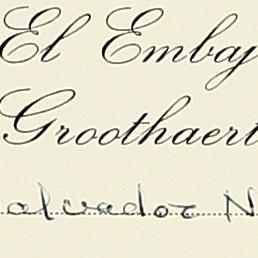 El Embaj
Groothaert
alvador N